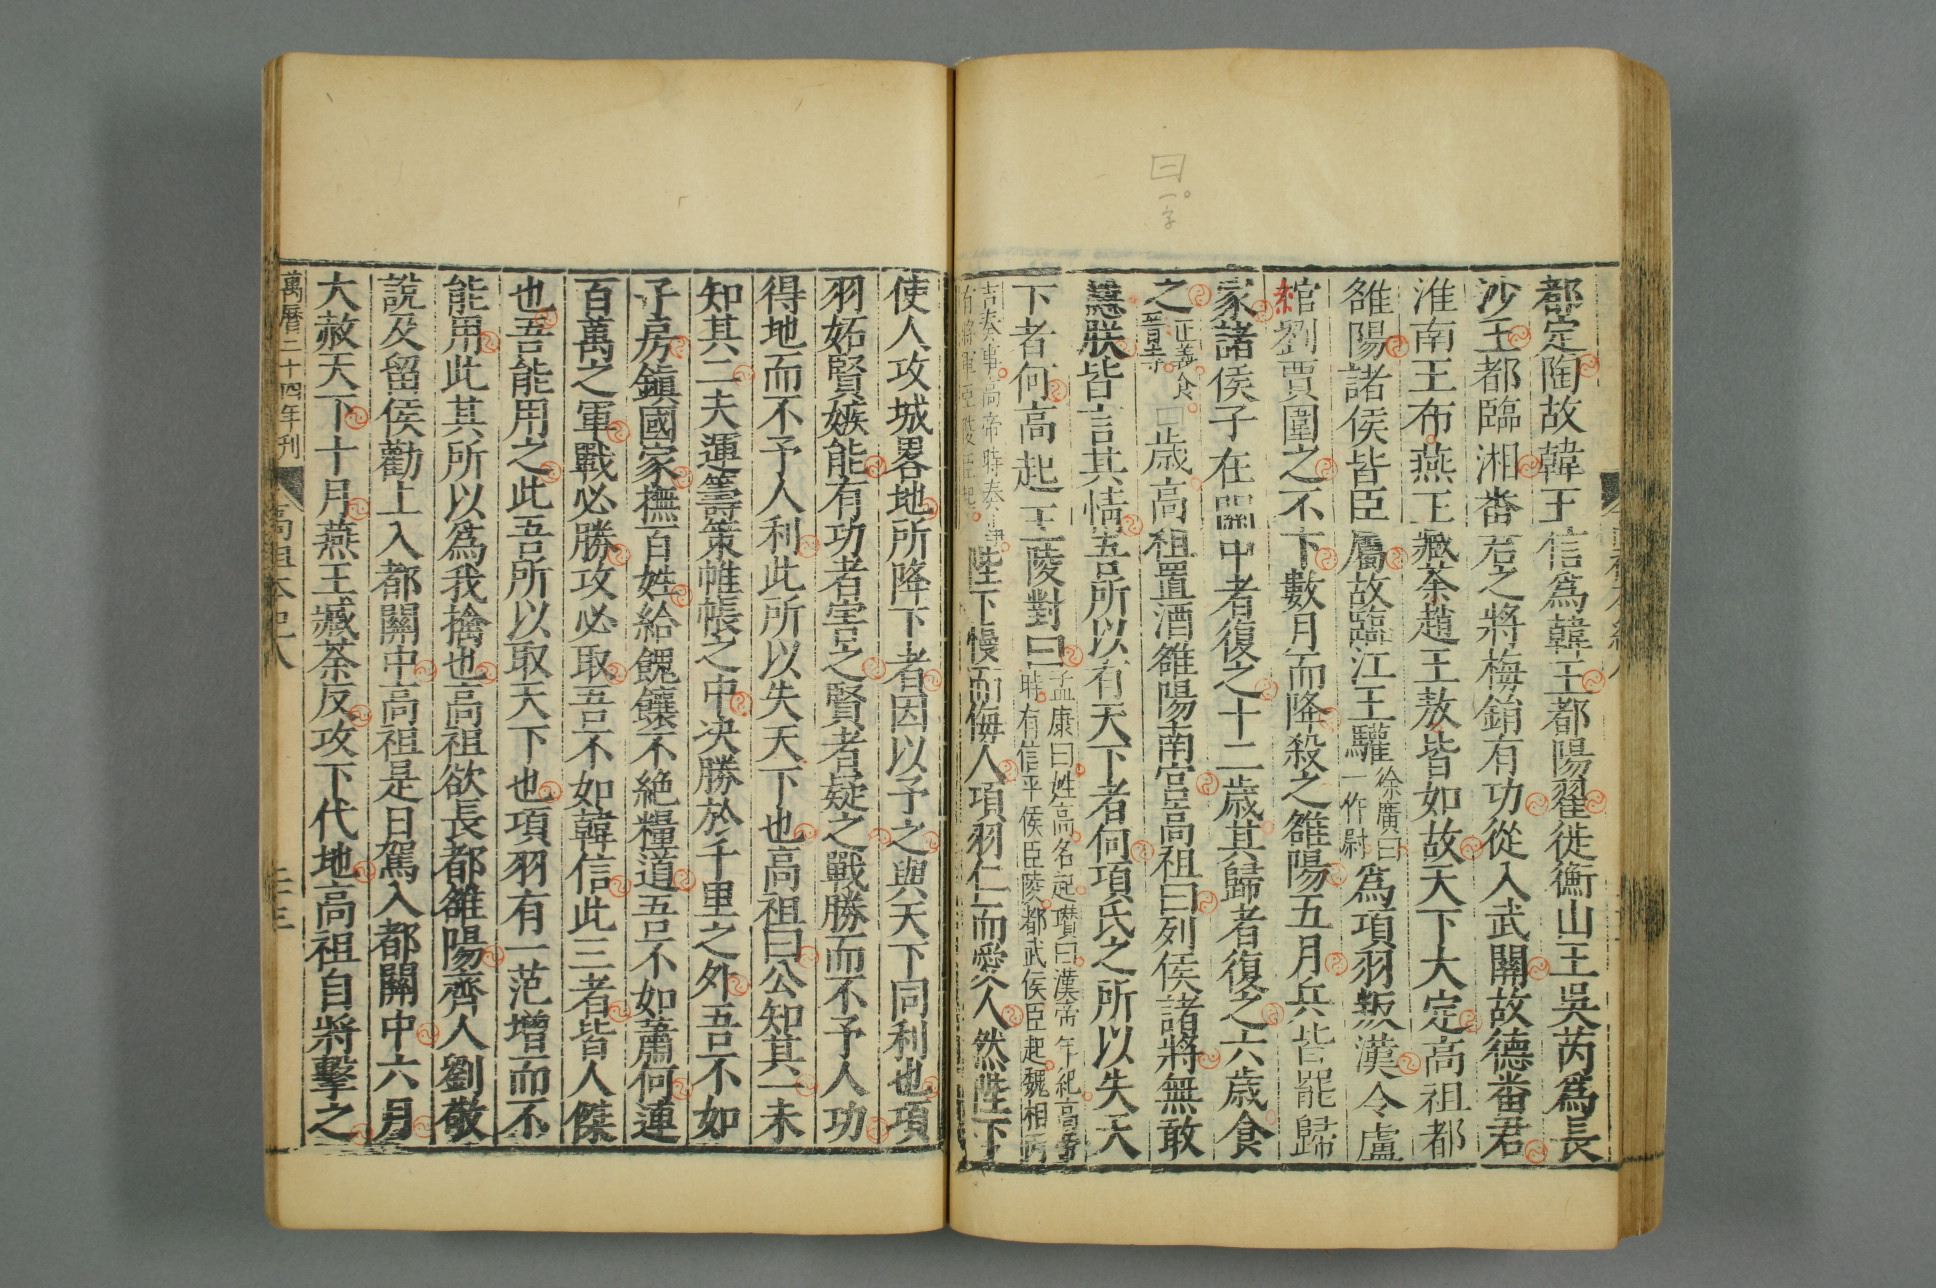 曰 一字
都定陶故韓王信爲韓王都陽翟徙衡山王吳芮爲長
沙王都臨湘番君之將梅鋗有功從入武關故德番君
淮南王布燕王臧荼趙王敖皆如故天下大定高祖都
雒陽諸侯皆臣屬故臨江王驩徐廣曰一作尉爲項羽叛漢令盧
綰劉賈圍之不下數月而降殺之雒陽五月兵皆罷歸
家諸侯子在關中者復之十二歲其歸者復之六歲食
之正義食音寺一歲高祖置酒雒陽南宮高祖曰列侯諸將無敢
朕皆言其情吾所以有天下者何項氏之所以失天
下者何高起王陵對曰孟康曰姓高名起瓚曰漢帝年紀高帝時有信平侯臣陵都武侯臣起魏相丙
吉奏事高帝時奏事有將軍臣陵臣起陛下慢而侮人項羽仁而愛人然陛下
使人攻城畧地所降下者因以予之與天下同利也項
羽妬賢嫉能有功者害之賢者疑之戰勝而不予人功
得地而不予人利此所以失天下也高祖曰公知其一未
知其二夫運籌策帷帳之中決勝於千里之外吾不如
子房鎮國家撫百姓給餽饟不絕糧道吾不如蕭何連
百萬之軍戰必勝攻必取吾不如韓信此三者皆人傑
也吾能用之此吾所以取天下也項羽有一范增而不
能用此其所以爲我擒也高祖欲長都雒陽齊人劉敬
說及留侯勸上入都關中高祖是日駕入都關中六月
大赦天下十月燕王臧荼反攻下代地高祖自將擊之
萬曆二十四年刊 高祖本紀八 二十三